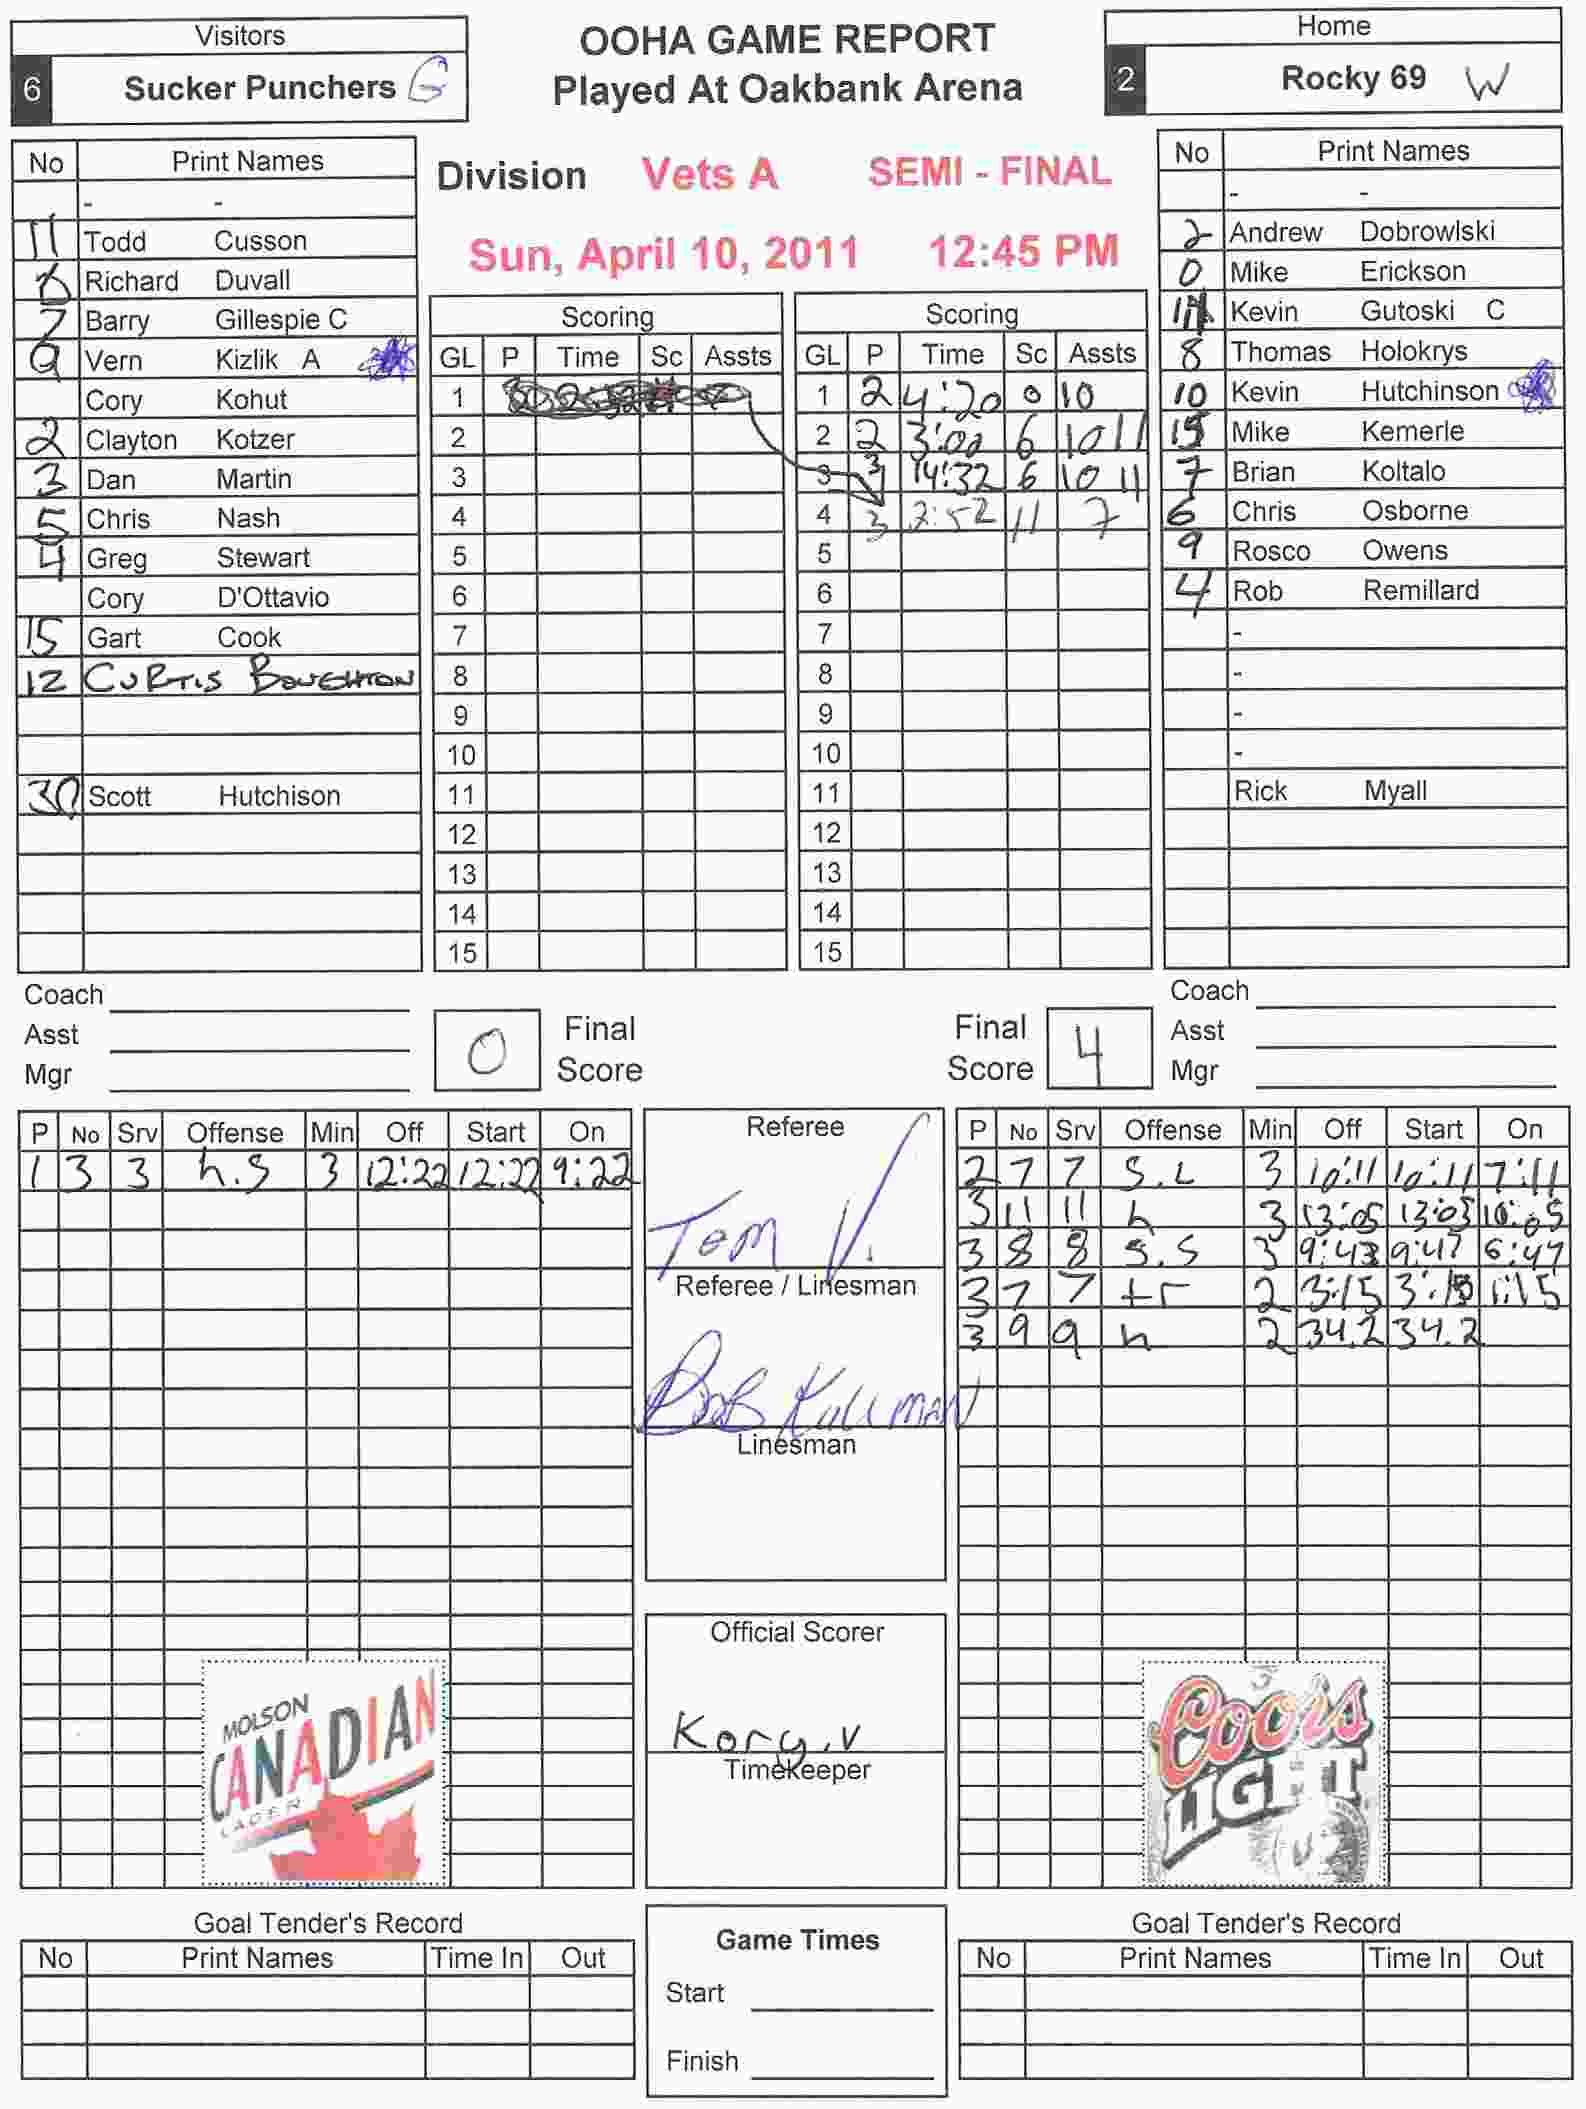 Visitors
6 Sucker Punchers G
OOHA GAME REPORT
Played At Oakbank Arena
Home
2 Rocky 69 W
Division Vets A SEMI - FINAL
Sun, April 10, 2011 12:45 PM
No Print Names
- -
11 Todd Cusson
Richard Duvall
7 Barry Gillespie C
9 Vern Kizlik A
Cory Kohut
2 Clayton Kotzer
3 Dan Martin
5 Chris Nash
4 Greg Stewart
Cory D'Ottavio
15 Gart Cook
12 CURTIS BOUGHTON
30 Scott Hutchison
Scoring
GL P Time Sc Assts
1
2
3
4
5
6
7
8
9
10
11
12
13
14
15
Scoring
GL P Time Sc Assts
1 2 4:20 0 10
2 2 3:00 6 10 11
3 3 14:32 6 10 11
4 3 2:52 11 7
5
6
7
8
9
10
11
12
13
14
15
No Print Names
- -
2 Andrew Dobrowlski
0 Mike Erickson
Kevin Gutoski C
8 Thomas Holokrys
10 Kevin Hutchinson
Mike Kemerle
7 Brian Koltalo
6 Chris Osborne
9 Rosco Owens
4 Rob Remillard
-
-
-
-
Rick Myall
Coach
Asst
Mgr
0 Final Score
Final Score 4
Coach
Asst
Mgr
P No Srv Offense Min Off Start On
1 3 3 h.s 3 12:22 12:22 9:22
Referee
Tom V.
Referee / Linesman
Bob Kullman
Linesman
Official Scorer
Kory.v
Timekeeper
P No Srv Offense Min Off Start On
2 7 7 S.L 3 10:11 10:11 7:11
3 11 11 h 3 13:05 13:05 10:05
3 8 8 S.S 3 9:43 9:47 6:47
3 7 7 tr 2 3:15 3:15 1:15
3 9 9 h 2 34.2 34.2
MOLSON
CANADIAN
LAGER
Coors
LIGHT
Goal Tender's Record
No Print Names Time In Out
Game Times
Start
Finish
Goal Tender's Record
No Print Names Time In Out